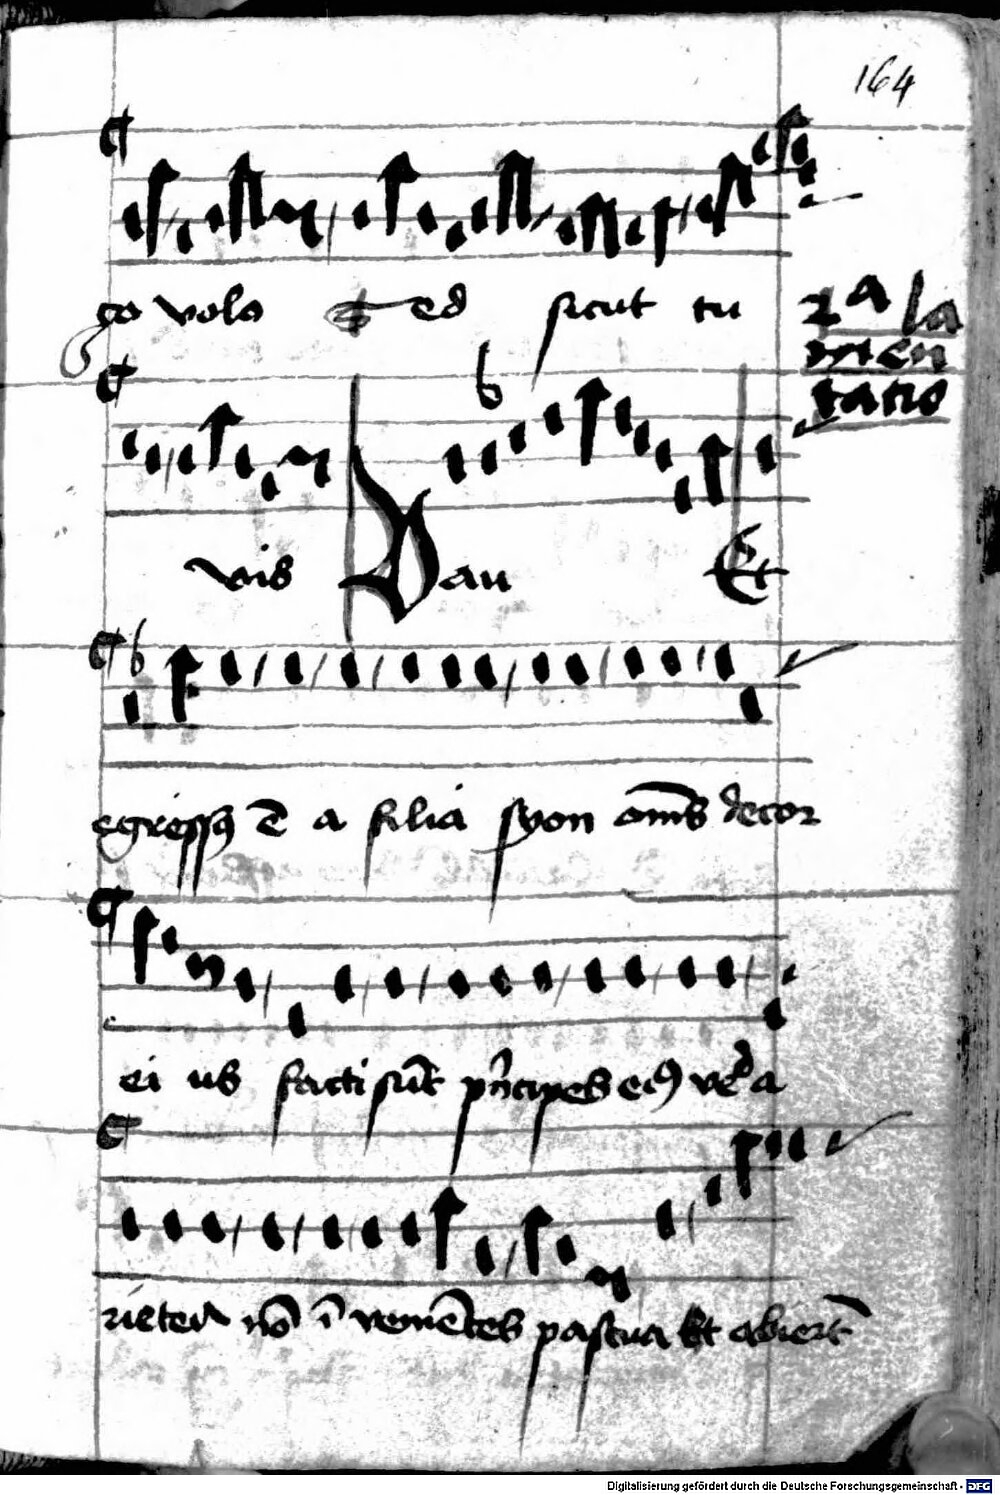 164
go volo sed sicut tu
2ᵃ la
men
tatio
vis Vau Et
egressꝯ ē a filia syon om̄s decor
ei us facti sūt p̄ncipes eiꝯ vel̄ a
rietes nō ī veniētes pascua Et abierūt
Digitalisierung gefördert durch die Deutsche Forschungsgemeinschaft - DFG